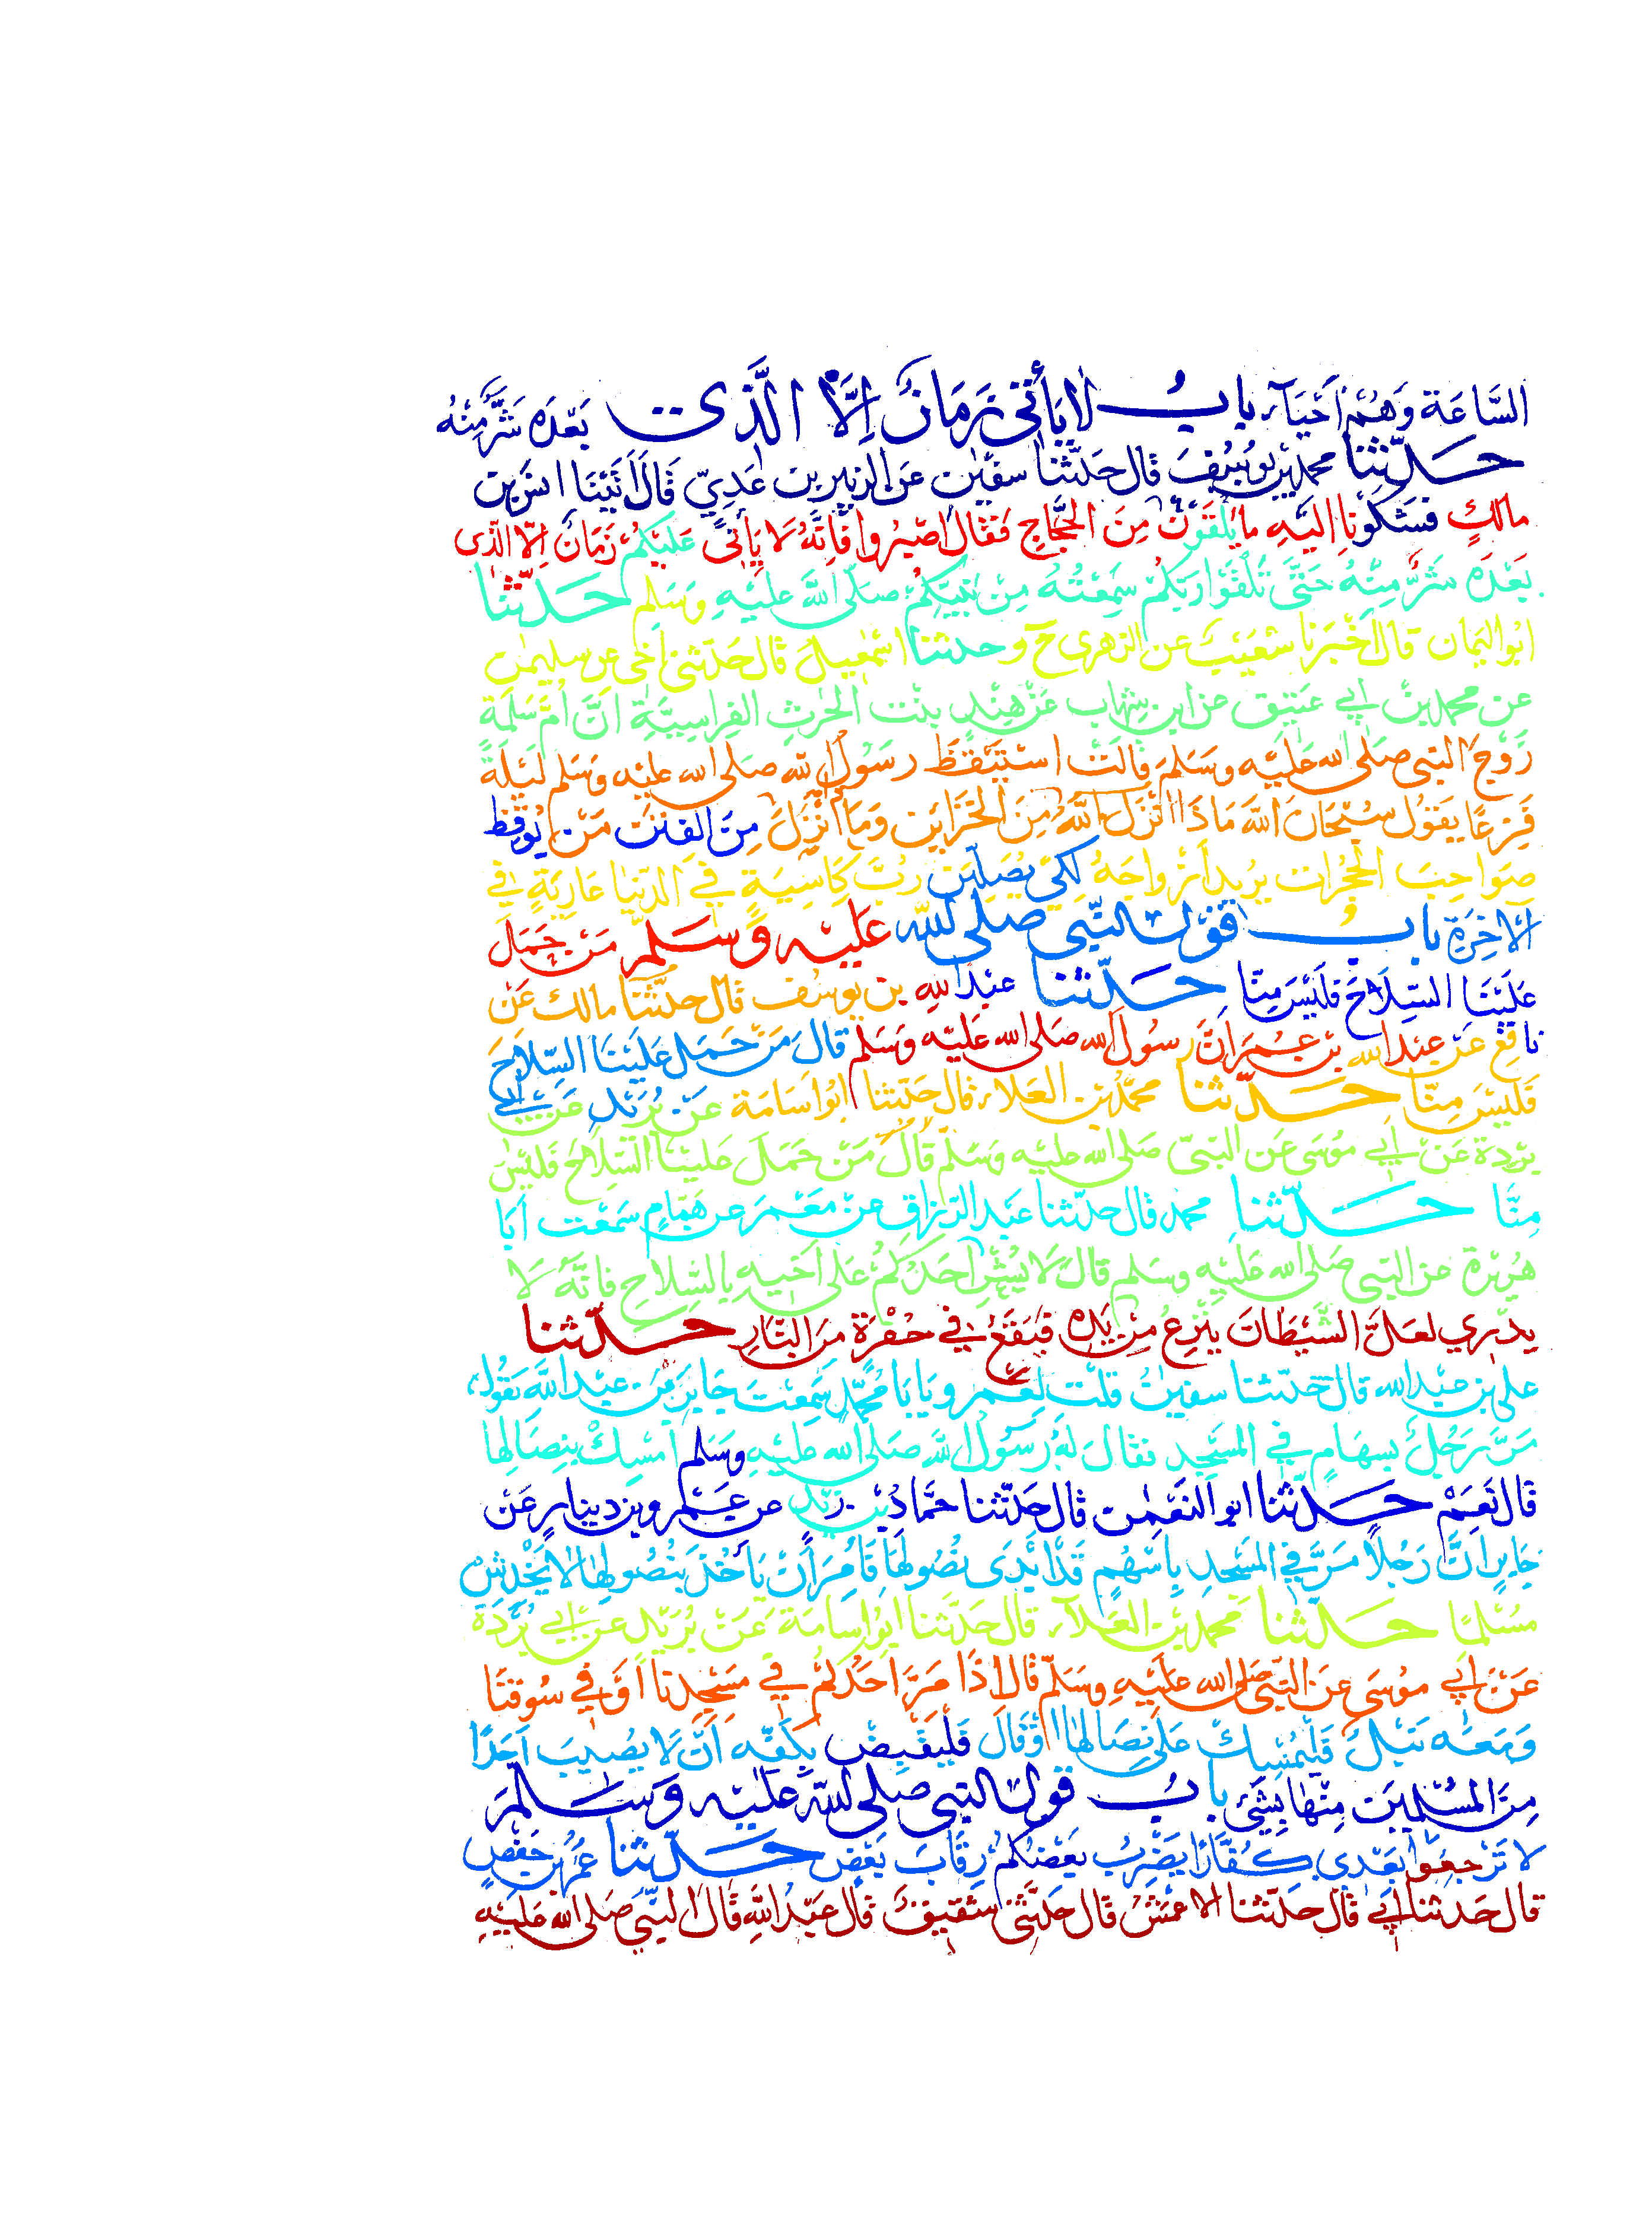 السَّاعَة وَهُمْ اَحْيَآء باب لا يَأتى زَمَانٌ اِلَّا الَّذى بَعْدَه شَرٌّ مِنْهُ
حَدّثنا محمد بن يوسُفَ قال حَدّثنا سفين عن الزبير بن عَدِيّ قَالَ اَتَيْنَا انسَ بن
مالكٍ فشكونا اليَهِ ما يَلقَوْنَ مِنَ الحَجَّاجِ فَقَال اصبِرُوا فَاِنَّهُ لَا يَأتى عَلَيكُمْ زَمَانٌ اِلّا الذى
بَعْدَه شَرٌّ مِنْهُ حَتَّى تَلْقَوْا رَبَّكُمْ سَمِعْتُهُ مِنْ نَبِيِّكُمْ صَلّى اللهُ عَليْهِ وَسَلم حَدّثنا
ابو اليمَان قال اَخْبَرَنا شعَيْبٌ عن الزهرى ح وحدثنا اسْمعِيلُ قال حَدّثنى اَخى عن سليمن
عن محمد بن ابي عَتيق عن ابن شِهَاب عَنْ هِنْدٍ بنْت الحٰرثِ الفِراسِيَّةِ اَنَّ اُمَّ سَلَمَةَ
زَوْجَ النبى صَلى الله عَلَيْه وسَلم قالَتْ اسْتَيْقَظَ رسَوُلُ الله صَلى الله عليْه وَسَلم لَيْلَةً
فَزِعًا يَقوُل سُبْحَانَ اللهِ مَا ذَا اَنْزَلَ اللهُ مِنَ الخَزَاين وَمَا اُنْزِلَ مِنَ الفتن مَنْ يُوقِظ
صَوَاحِبَ الحُجُرات يريد اَزْواجَهُ لكَىْ يُصَلّينَ رُبَّ كَاسِيَةٍ في الدّنيا عَارِيَةٍ في
الآخِرَةِ باب قوْل النّبى صَلى الله عَليْه وَسَلم مَنْ حَمَل
عَلَيْنَا السِّلَاحَ فلَيْسَ مِنّا حَدّثنا عبْد اللهِ بن يوسُف قال حدّثنا مالك عَنْ
نافِع عَنْ عبْد الله بن عُمرَ اَنَّ رسُول الله صَلى الله عَليْه وَسَلم قالَ مَنْ حَمَل عَلَيْنَا السِّلاَحَ
فَليْسَ مِنّا حَدّثنا محمّد بن العَلاء قال حَدّثنا ابُو اسَامَة عَنْ بُرَيْد عَنْ ابي
برْدة عَنْ ابي مُوسَى عَن النّبىّ صَلى الله عليْه وَسَلم قالَ مَنْ حَمَلَ عَليْنَا السِّلاحَ فَليْسَ
مِنَّا حَدّثنا محمد قال حدّثنا عبْد الرّزاق عَنْ معْمَرَ عن همّامٍ سَمعْت اَبَا
هُريْرة عن النّبى صَلى الله عَليْه وسَلم قالَ لَا يُشِرْ اَحَدُكُمْ عَلى اَخيهِ بالسِّلاحِ فانّهُ لَا
يدْري لعَلَّ الشّيْطَانَ ينْزعُ مِنْ يَدِه فيَقَعُ في حُفْرَة منَ النّارِ حَدّثنا
على بن عبْد الله قال حَدّثنا سفين قلْت لِعَمْرو يَا بَا محمّد سَمعْتَ جَابرَ بن عبْد اللهِ يَقُول
مَرَّ رَجُلٌ بسِهَامٍ في المسْجد فقَالَ لَهُ رسَوُلُ اللهِ صَلى الله عَليْهِ وَسَلم اَمْسِكْ بنِصَالها
قال نَعَمْ حَدّثنا ابو النعْمٰن قال حَدّثنا حمّادُ بن زَيْد عن عَمْرو بن دينارٍ عَنْ
جَابرٍ انَّ رَجُلًا مَرَّ في المسْجدِ بِاَسْهُمٍ قَد اَبْدَى نُصُولَهَا فَاُمِرَ اَنْ يَاْخُذَ بنُصُولِهَا لَا يَخْدِشُ
مُسْلمًا حَدّثنا محمد بن العَلَآء قال حَدَّثنا ابُو اسامَة عَنْ بُرَيْد عن ابي بُرْدَة
عَنْ ابي مُوسَى عن النّبىّ صَلى الله عليْهِ وسَلم قال اذَا مَرَّ اَحَدُكُمْ في مَسْجِدِنا اَوْ في سُوقنَا
وَمعَه نَبْلٌ فَلْيُمْسِكْ عَلى نِصَالهَا اَوْ قَالَ فَليَقْبِضْ بكَفّه اَنْ لَا يُصيبَ اَحَدًا
مِنَ المسْلمِينَ مِنْها بِشَىْءٍ باب قوْل النبى صَلى الله عَليْه وَسَلم
لا تَرْجعُوا بَعْدى كُفَّارًا يَضْرِبُ بعْضُكُمْ رِقَابَ بَعْضٍ حَدّثنا عُمَرُ بن حَفْصٍ
قال حَدثنا اَبي قَال حَدّثنا الاعمَشُ قَال حَدّثنى شقيقٌ قَال عَبْد اللهِ قَال النّبىُّ صَلى الله عَليْهِ